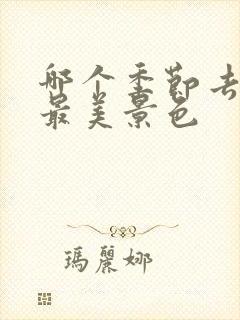 哪个季节去
最美景色
瑪麗娜